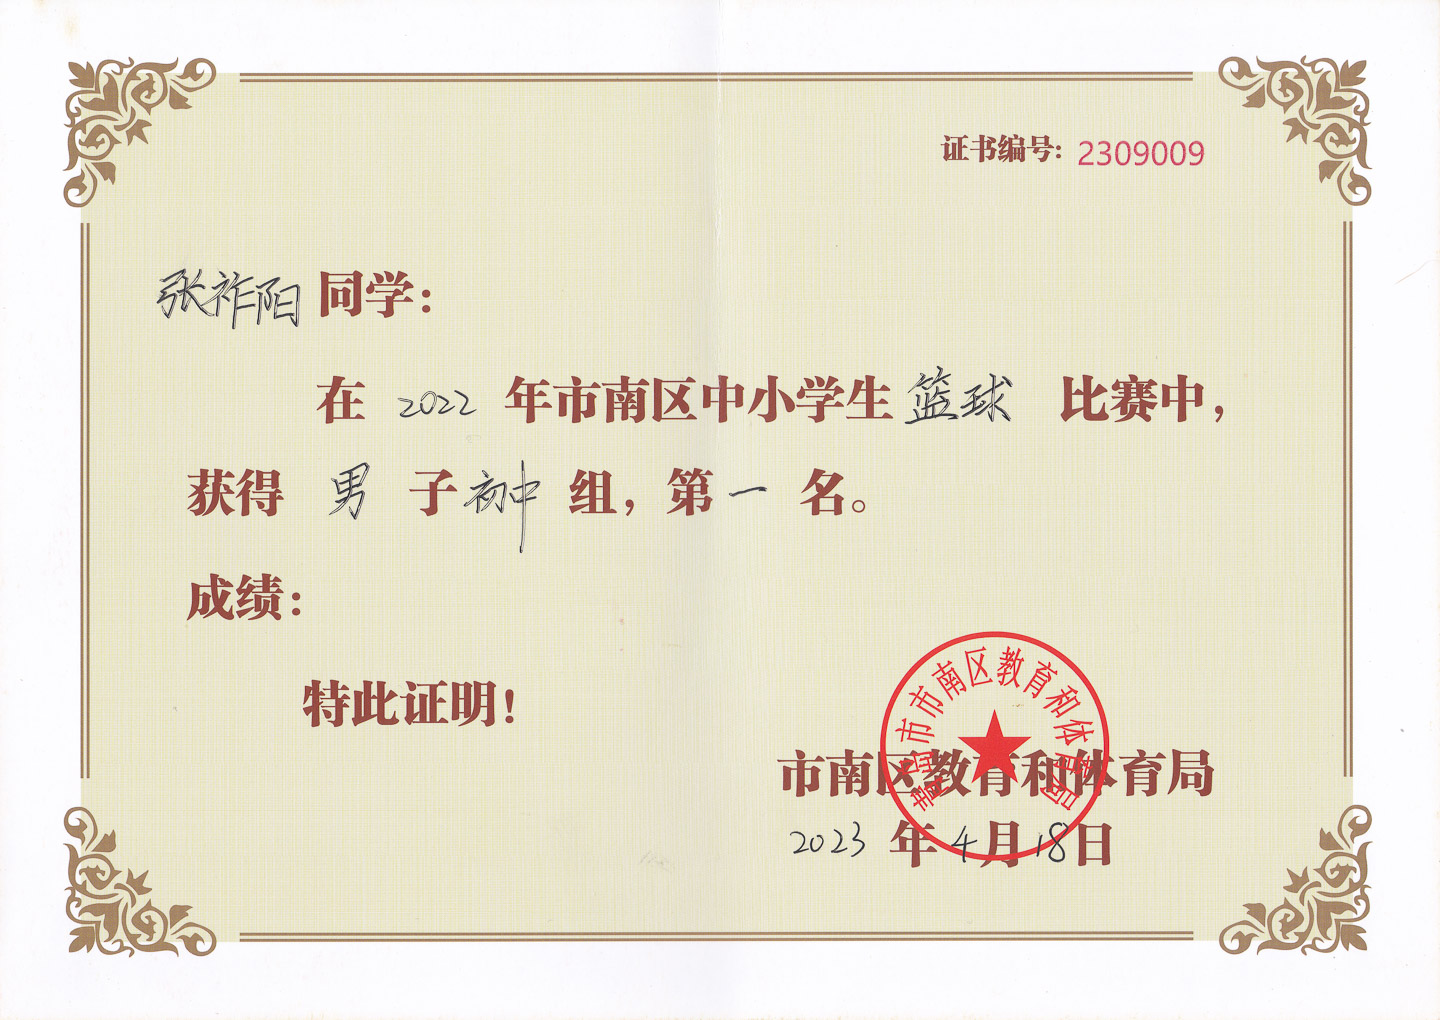 证书编号：2309009
张祚阳同学：
在 2022 年市南区中小学生篮球 比赛中，
获得 男 子初中 组，第一 名。
成绩：
特此证明！
青岛市市南区教育和体育局
市南区教育和体育局
2023 年 4 月 18 日